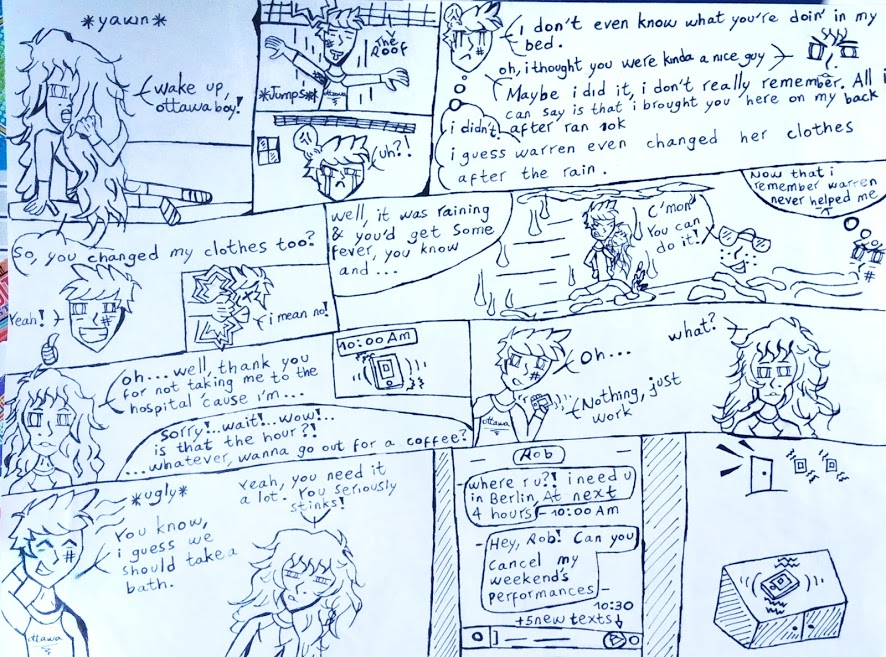 *yawn*
wake up,
ottawa boy!
The
Roof
*Jumps*
ottawa
uh?!
I don't even know what you're doin' in my
bed.
oh, i thought you were kinda a nice guy
Maybe i did it, i don't really remember. All i
can say is that i brought you here on my back
after ran 10k
i didn't!
i guess warren even changed her clothes
after the rain.
So, you changed my clothes too?
Yeah!
i mean no!
well, it was raining
& you'd get some
fever, you know
and ...
C'mon
You can
do it!
Now that i
remember warren
never helped me
oh... well, thank you
for not taking me to the
hospital 'cause i'm...
Sorry!..wait!..wow!..
is that the hour?!
...whatever, wanna go out for a coffee?
10:00 Am
Oh...
Nothing, just
work
ottawa
what?
*ugly*
You know,
i guess we
should take a
bath.
ottawa
Yeah, you need it
a lot. You seriously
stinks!
Rob
where r u?! i need u
in Berlin, At next
4 hours - 10:00 Am
Hey, Rob! Can you
cancel my
weekend's
performances
10:30
+5 new texts